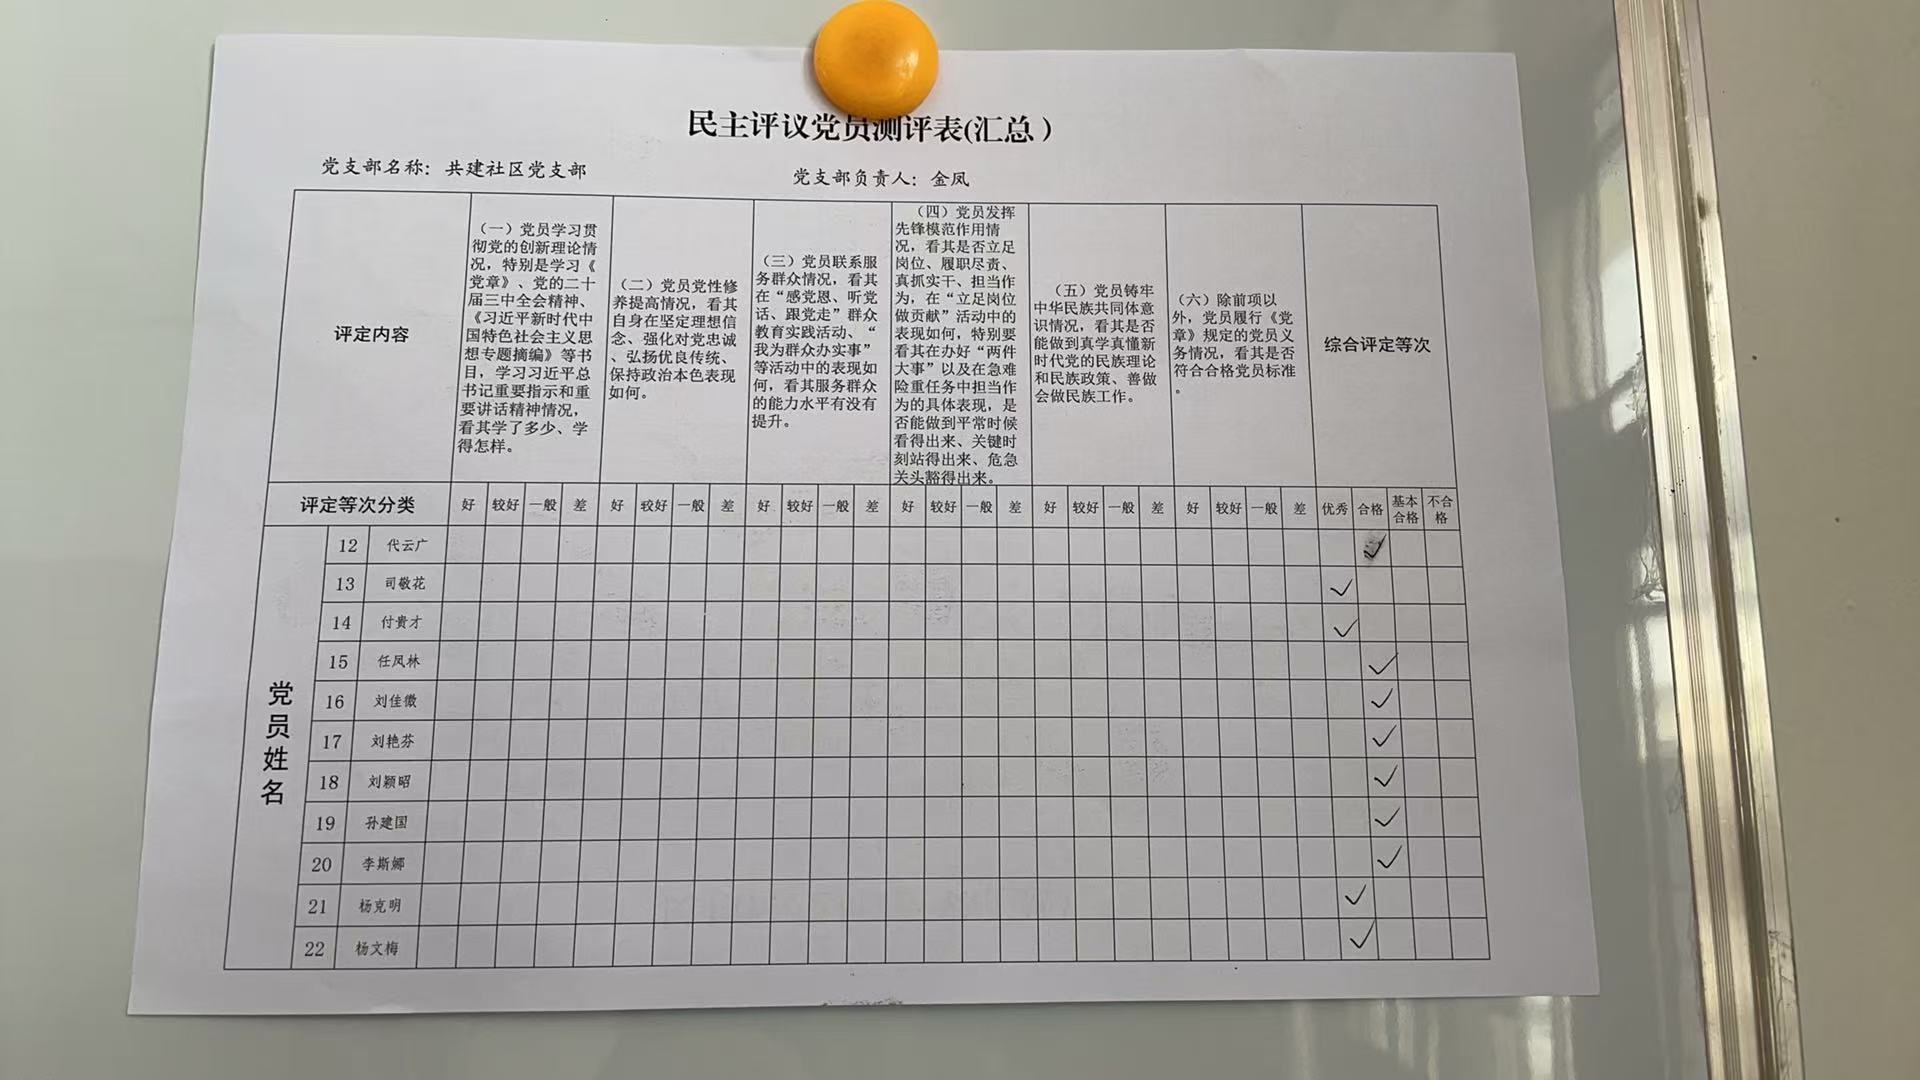 民主评议党员测评表(汇总)
党支部名称：共建社区党支部
党支部负责人：金凤
评定内容
（一）党员学习贯
彻党的创新理论情
况，特别是学习《
党章》、党的二十
届三中全会精神、
《习近平新时代中
国特色社会主义思
想专题摘编》等书
目，学习习近平总
书记重要指示和重
要讲话精神情况，
看其学了多少、学
得怎样。
（二）党员党性修
养提高情况，看其
自身在坚定理想信
念、强化对党忠诚
、弘扬优良传统、
保持政治本色表现
如何。
（三）党员联系服
务群众情况，看其
在“感党恩、听党
话、跟党走”群众
教育实践活动、“
我为群众办实事”
等活动中的表现如
何，看其服务群众
的能力水平有没有
提升。
（四）党员发挥
先锋模范作用情
况，看其是否立足
岗位、履职尽责、
真抓实干、担当作
为，在“立足岗位
做贡献”活动中的
表现如何，特别要
看其在办好“两件
大事”以及在急难
险重任务中担当作
为的具体表现，是
否能做到平常时候
看得出来、关键时
刻站得出来、危急
关头豁得出来。
（五）党员铸牢
中华民族共同体意
识情况，看其是否
能做到真学真懂新
时代党的民族理论
和民族政策、善做
会做民族工作。
（六）除前项以
外，党员履行《党
章》规定的党员义
务情况，看其是否
符合合格党员标准
。
综合评定等次
评定等次分类 好 较好 一般 差 好 较好 一般 差 好 较好 一般 差 好 较好 一般 差 好 较好 一般 差 好 较好 一般 差 优秀 合格 基本合格 不合格
党员姓名
12 代云广 ✓
13 司敬花 ✓
14 付贵才 ✓
15 任凤林 ✓
16 刘佳徽 ✓
17 刘艳芬 ✓
18 刘颖昭 ✓
19 孙建国 ✓
20 李斯娜 ✓
21 杨克明 ✓
22 杨文梅 ✓